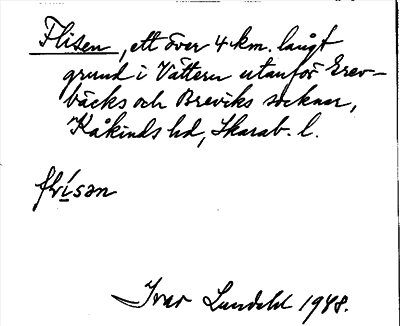 Flisen, ett över 4 km. långt
grund i Vättern utanför Erev-
bäcks och Breviks socknar,
Kåkinds hd, Skarab. l.
flisən
Ivar Lundahl 1948.